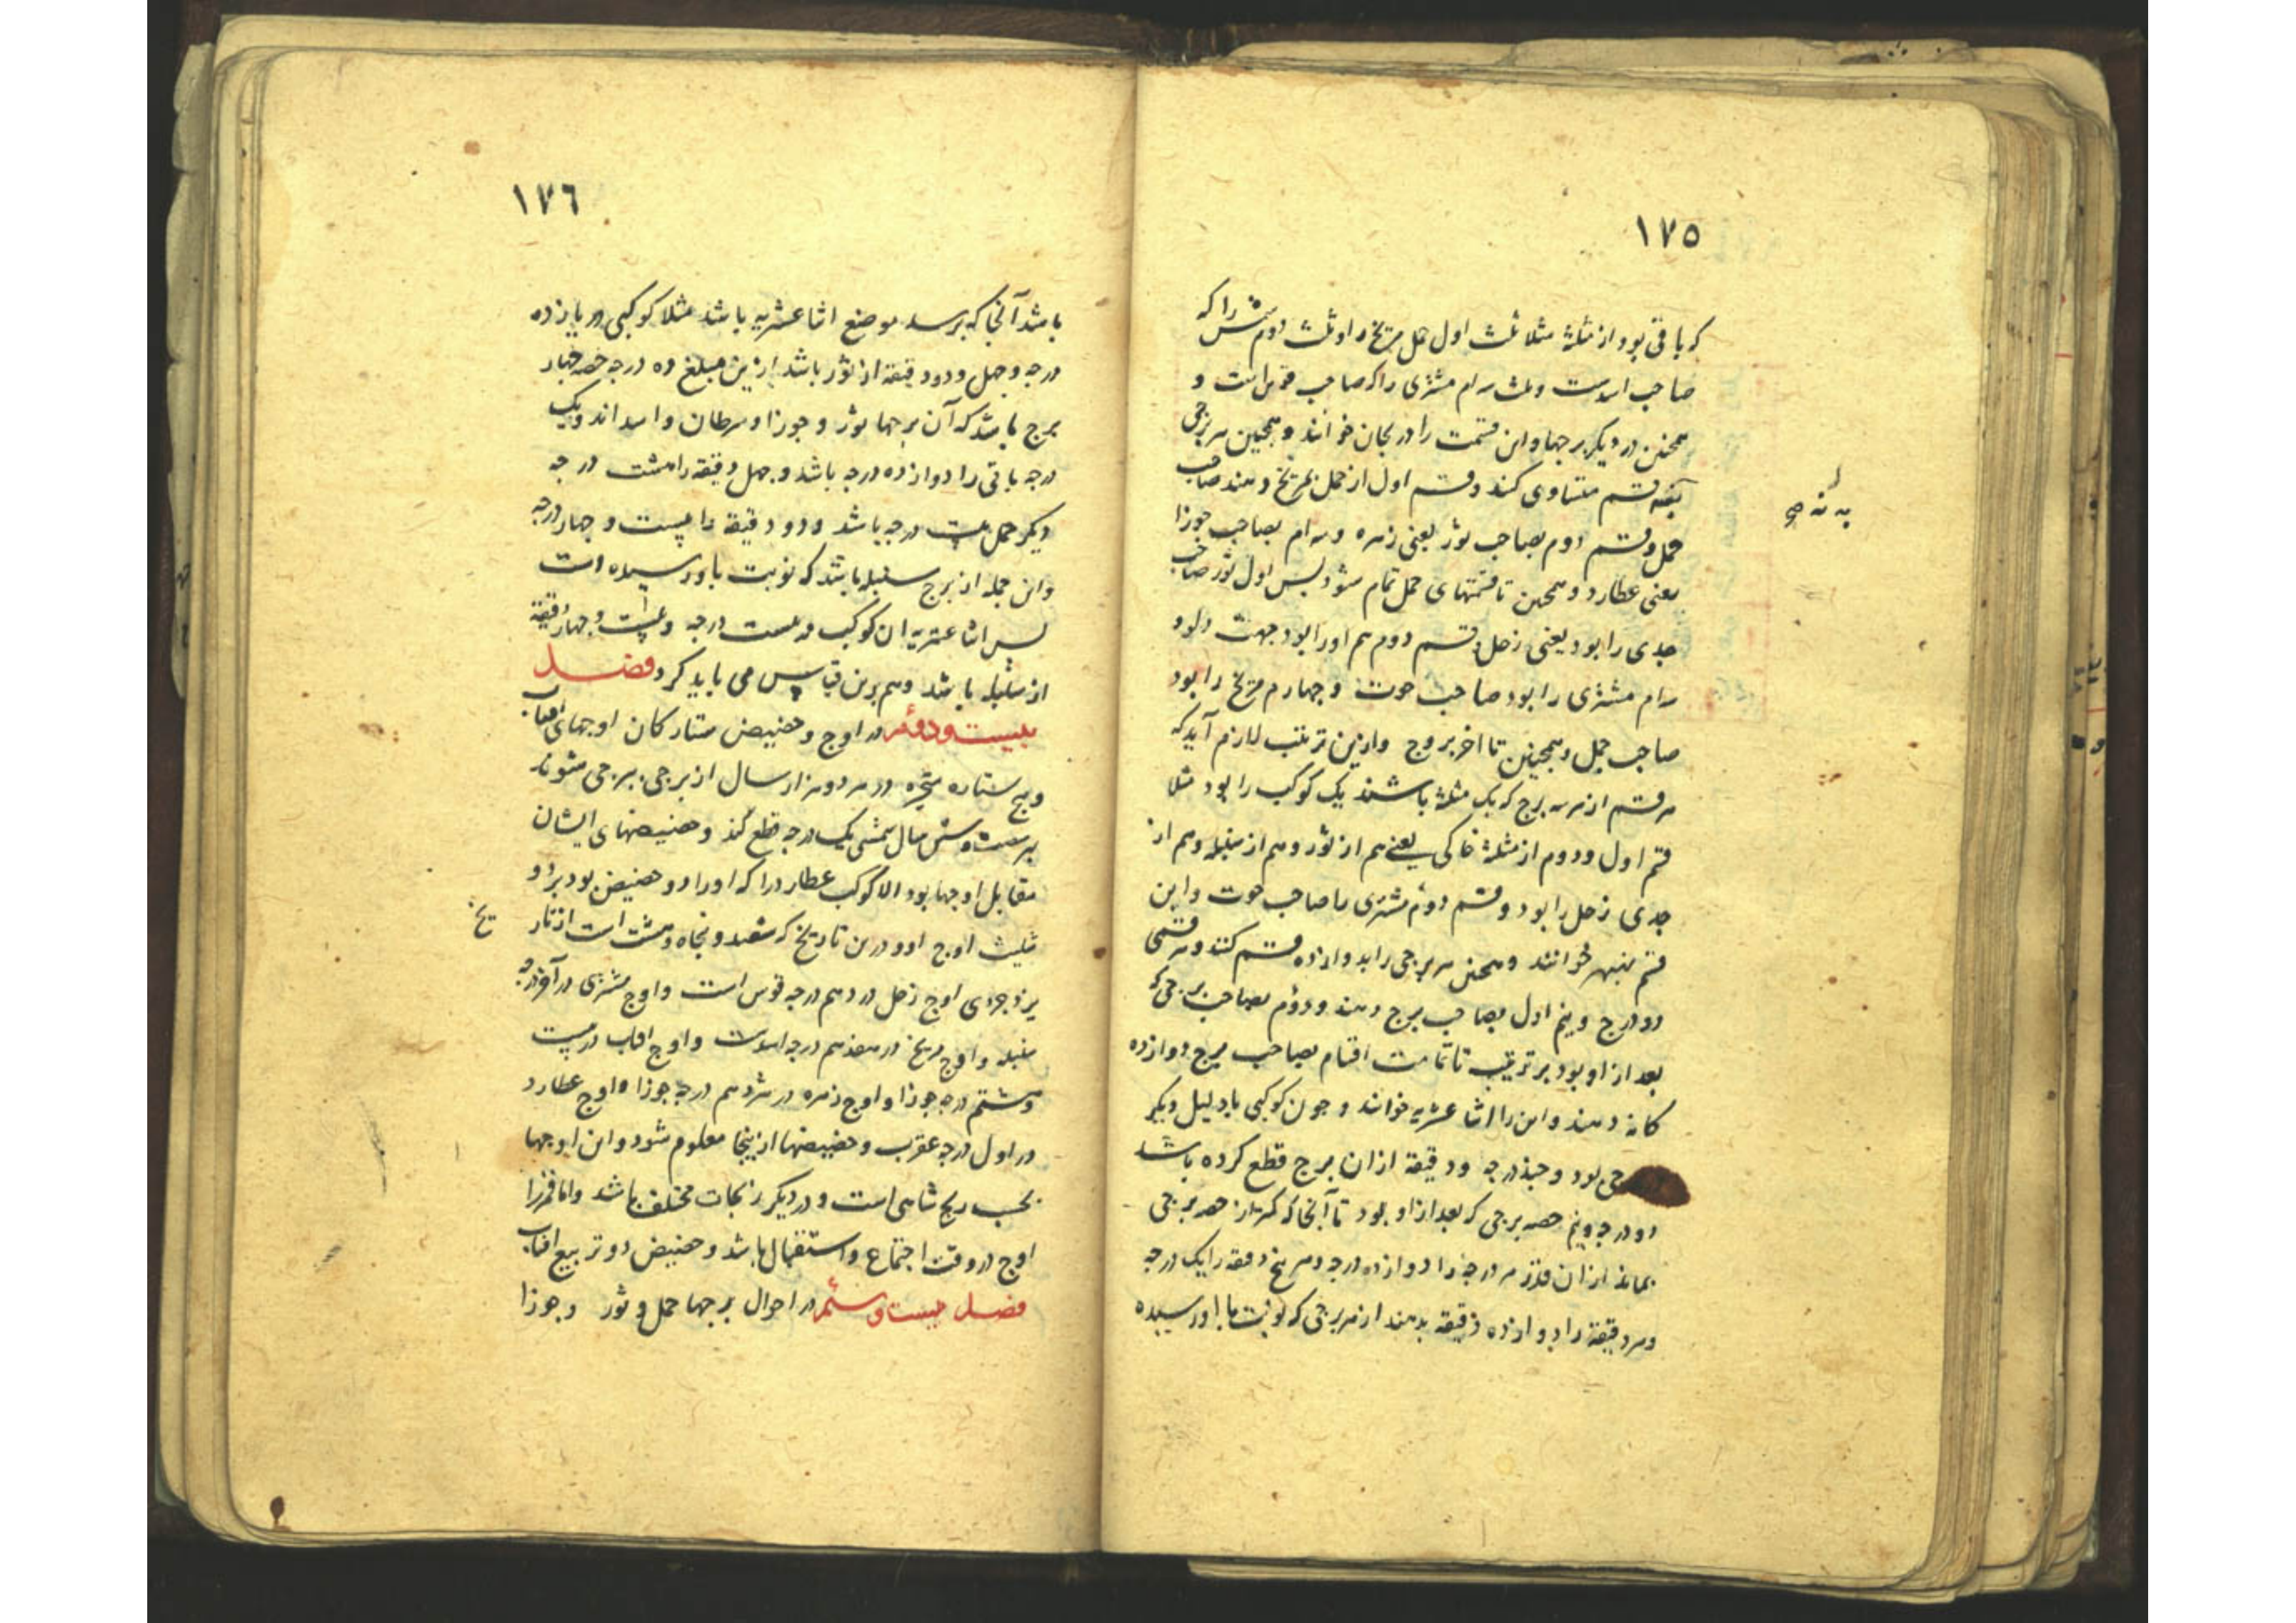 ١٧٥
که باقی بود از مثلثهٔ مثلا ثلث اول حمل مریخ را و ثلث دوم شمس را که
صاحب اسدست و ثلث سیم مشتری را که صاحب قوس است و
همچنین در دیگر برجها و این قسمت را دریجان خوانند و همچنین هر برجی
بنه قسم متساوی کنند و قسم اول از حمل بمریخ دهند صاحب
حمل و قسم دوم بصاحب ثور یعنی زهره و سیم بصاحب جوزا
یعنی عطارد و همچنین تا قسمتهای حمل تمام شود پس اول ثور صاحب
جدی را بود یعنی زحل و قسم دوم هم او را بود جهت دلو و
سیم مشتری را بود صاحب حوت و چهارم مریخ را بود
صاحب حمل و همچنین تا اخر بروج و ازین ترتیب لازم آید که
هر قسم از هر سه برج که یک مثلثهٔ باشند یک کوکب را بود مثلا
قسم اول و دوم از مثلثهٔ خاکی یعنی هم از ثور و هم از سنبله و هم از
جدی زحل را بود و قسم دوم مشتری را صاحب حوت و این
قسم نه‌بهر خوانند و همچنین هر برجی را بدوازده قسم کنند و هر قسمی
دو درج و نیم اول بصاحب برج دهند و دوم بصاحب برجی که
بعد از او بود بر ترتیب تا تمامت اقسام بصاحب برج دوازده
کانه دهند و این را اثنا عشریه خوانند و چون کوکبی یا دلیل دیگر
جی بود و چند درجه و دقیقهٔ از ان برج قطع کرده باشد
دو درجه و نیم حصه برجی که بعد از او بود تا آنجا که کمتر از حصه برجی
بماند از ان قدر هر درجه را دوازده درجه و هر پنج دقیقه را یک درجه
و هر دقیقهٔ را دوازده دقیقهٔ بدهند از هر برجی که نوبت باو رسیده
١٧٦
باشد آنجا که برسد موضع اثنا عشریه باشد مثلا کوکبی در یازده
درجه و چهل و دو دقیقهٔ از ثور باشد ازین مبلغ ده درجه حصه چهار
برج باشد که آن برجها ثور و جوزا و سرطان و اسد اند و یک
درجه باقی را دوازده درجه باشد و چهل دقیقه را هشت درجه
دیگر جمل بیست درجه باشد و دو دقیقه را بیست و چهار درجه
و این جمله از برج سنبله باشد که نوبت باو رسیده است
پس اثنا عشریه ان کوکب در بیست درجه و بیست و چهار دقیقهٔ
از سنبله باشد و هم برین قیاس می باید کرد فصل
بیست و دوم در اوج و حضیض ستارکان اوجهای آفتاب
و پنج ستاره متحیره در هر دو هزار سال از برجی ببرجی شوند
بهر شصت و شش سال شمسی یک درجه قطع کند و حضیضهای ایشان
مقابل اوجها بود الا کوکب عطارد را که او را دو حضیض بود بر دو
تثلیث اوج او و درین تاریخ که ششصد و پنجاه و هشت است از تار
یخ
یزدجردی اوج زحل در دهم درجه قوس است و اوج مشتری در آخر درجه
سنبله و اوج مریخ در هفدهم درجه اسدست و اوج افتاب در بیست
و هشتم درجه جوزا و اوج زهره در هژدهم درجه جوزا و اوج عطارد
در اول درجه عقرب و حضیضها ازینجا معلوم شود و این اوجها
بحسب زیج شاهی است و در دیگر زیجات مختلف باشد و اما قمر را
اوج در وقت اجتماع و استقبال باشد و حضیض دو تربیع افتاب
فصل بیست و سیم در احوال برجها حمل و ثور و جوزا